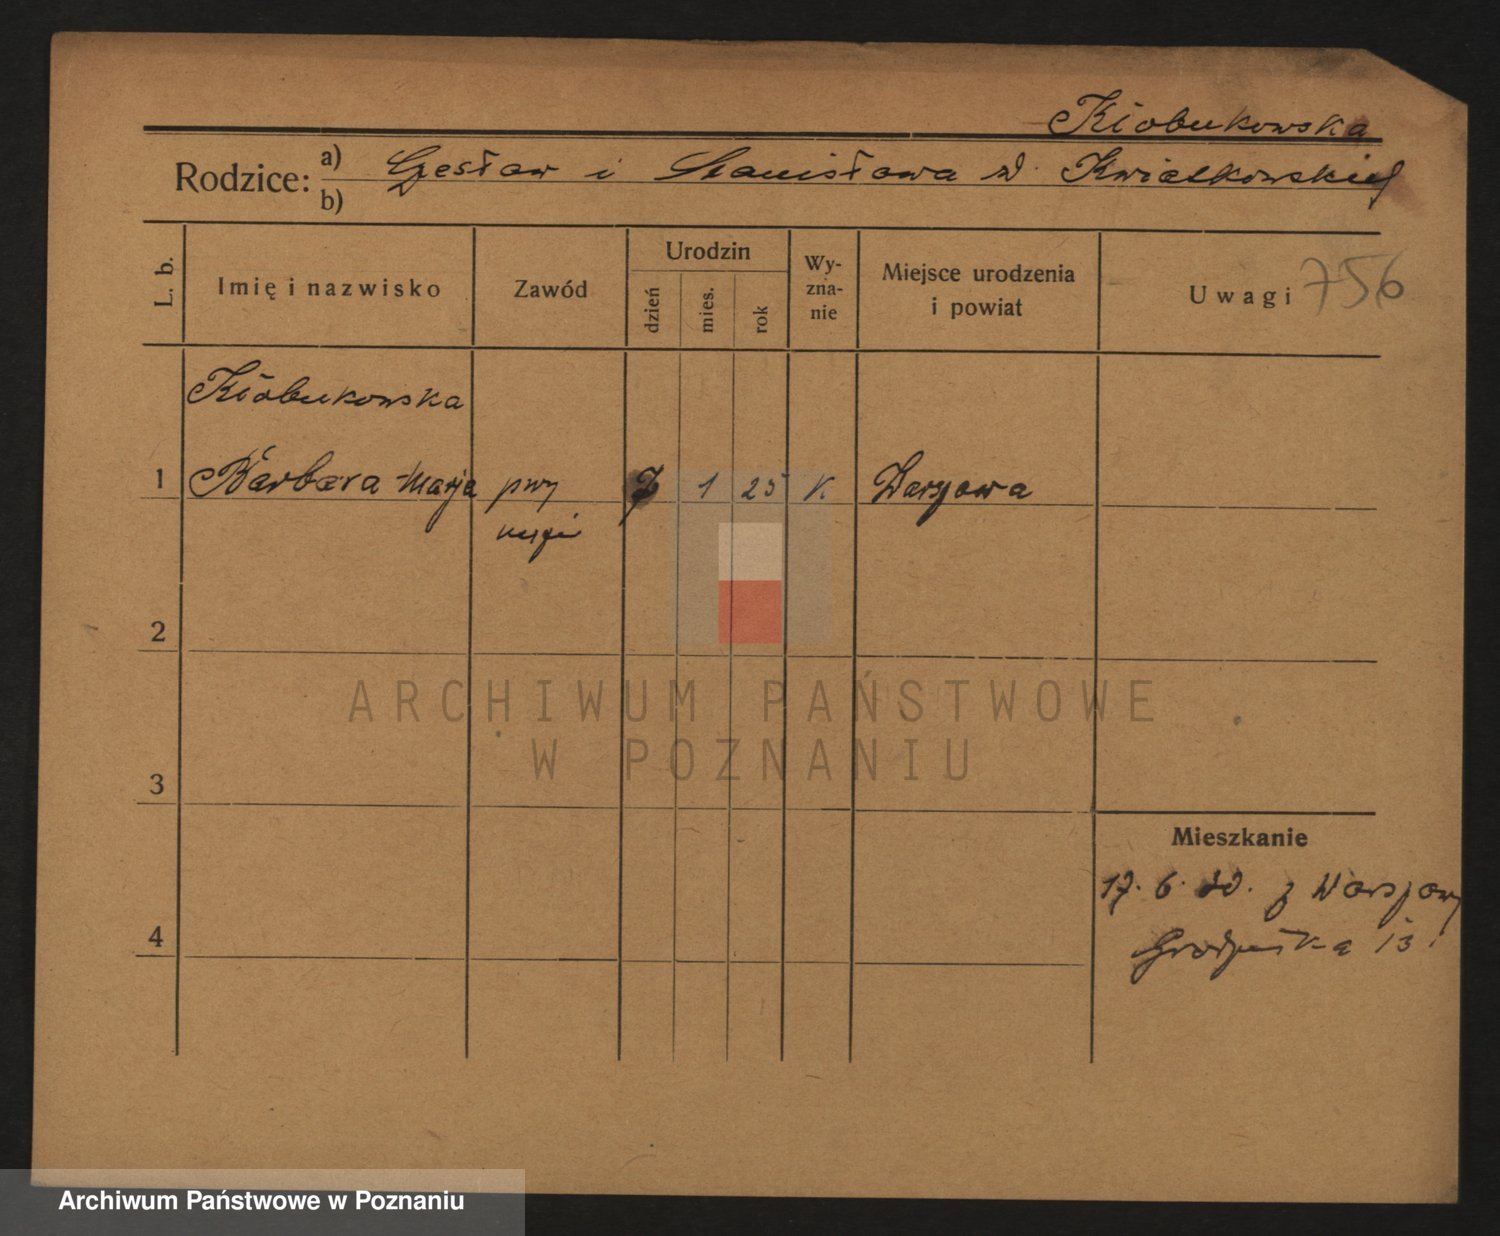 Kłobukowska
Rodzice: a) Czesław i Stanisława d. Kwiatkowskiej
b)
L. b.
Imię i nazwisko
Zawód
Urodzin
dzień
mies.
rok
Wy-
zna-
nie
Miejsce urodzenia
i powiat
Uwagi 756
Kłobukowska
1 Barbara-Marja przy 7 1 25 K Warszawa
2
3
Mieszkanie
17. 6. 30. z Warszawy
4
13.
ARCHIWUM PAŃSTWOWE
W POZNANIU
Archiwum Państwowe w Poznaniu